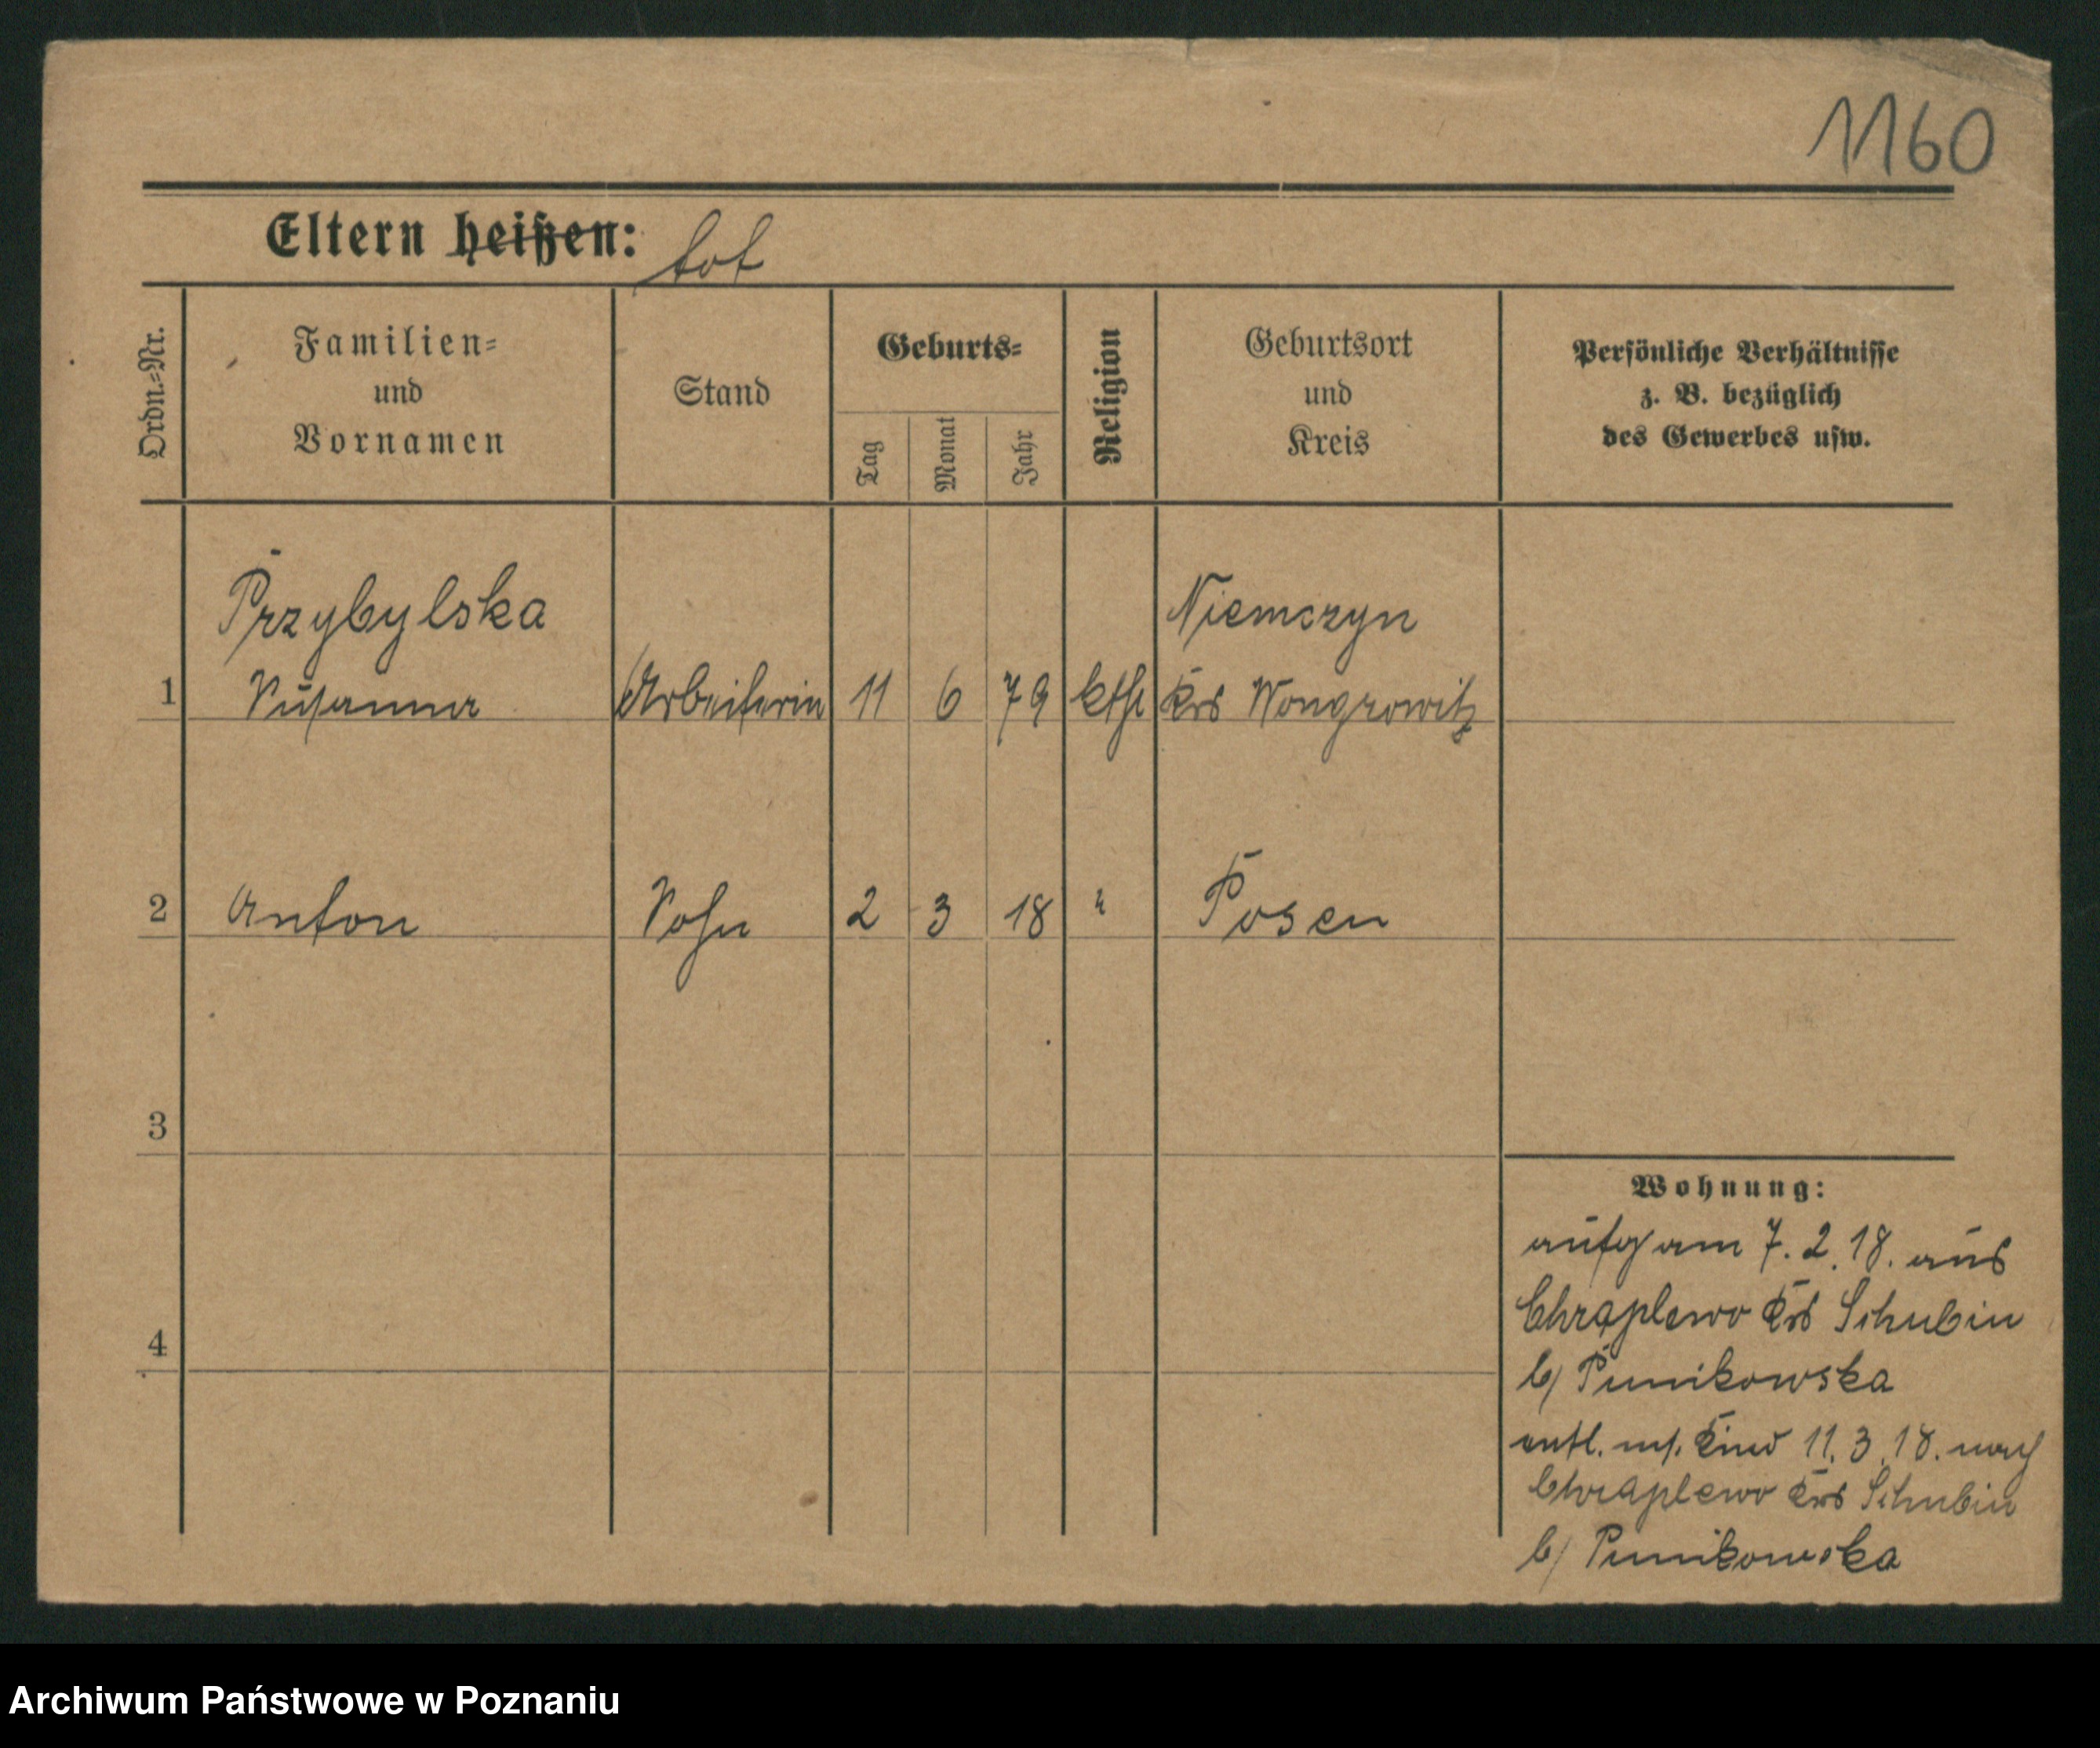 1160
Eltern heißen: tot
Ordn.=Nr.
Familien=
und
Vornamen
Stand
Geburts=
Tag
Monat
Jahr
Religion
Geburtsort
und
Kreis
Persönliche Verhältnisse
z. B. bezüglich
des Gewerbes usw.
Przybylska Niemczyn
1 Susanna Arbeiterin 11 6 79 kth Krs Wongrowitz
2 Anton Sohn 2 3 18 " Posen
3
4
Wohnung:
aufg am 7. 2. 18. aus
Chraplewo Krs Schubin
b/ Punikowska
entl. m/. Kind 11. 3. 18. nach
Chraplewo Krs Schubin
b/ Punikowska
Archiwum Państwowe w Poznaniu